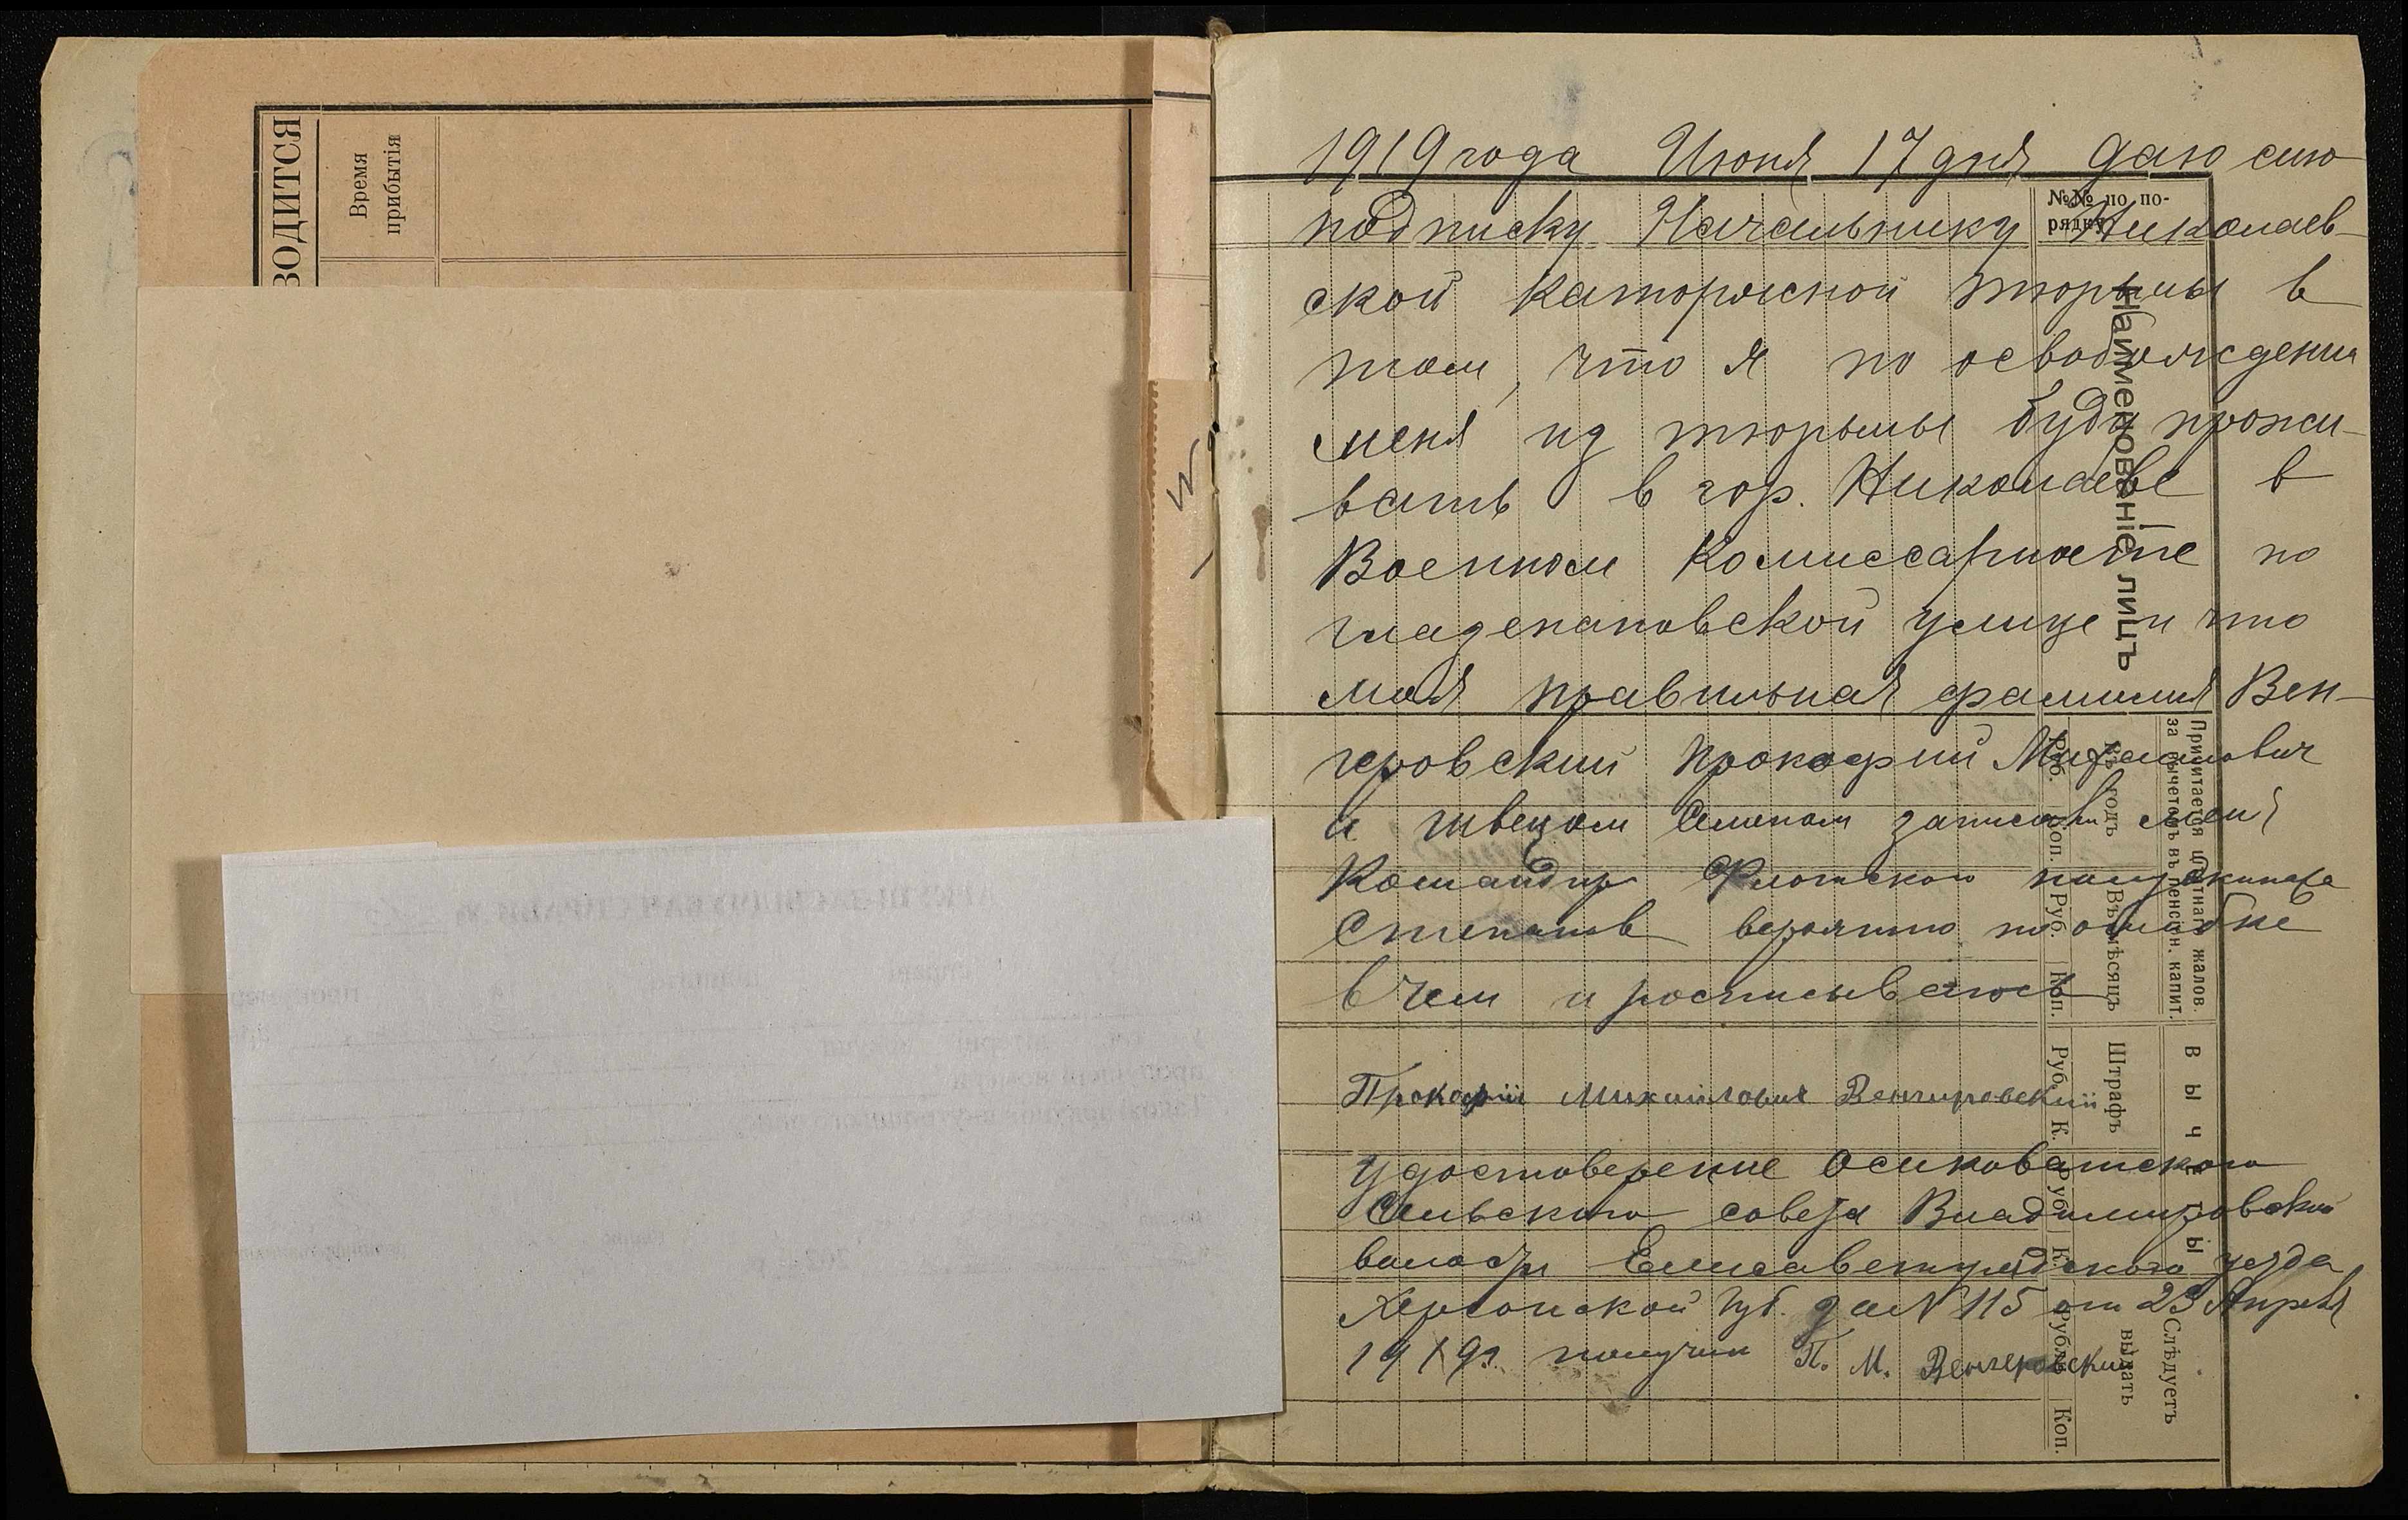 ВОДИТСЯ
Время
прибытія
1919 года Июня 17 дня даю сию
подписку Начальнику Николаев-
ской каторжской тюрьмы в
том, что я по освобождении
меня из тюрьмы буду прожи-
вать в гор. Николаеве в
Военном Комиссариате по
улице и что
моя правильная фамилия Вен-
геровский Прокофий Михайлович
и швецом Семеном записал меня
Командир Флотского полуэкипажа
Степанов вероятно по ошибке
в чем и росписываюсь
Прокофій Михайлович Венгировский
Удостоверение Осиковатского
Сельского совета Владимировской
волости Елисаветградского уезда
Херсонской губ. за N 115 от 23 Апреля
1919 г. получил П. М. Венгеровский
№№ по по-
рядку
Наименованіе лицъ
Причитается штатнаго жалов.
за вычетомъ въ пенсіон. капит.
Въ годъ
Въ мѣсяцъ
Руб. Коп. Руб. Коп.
ВЫЧЕТЫ
Штрафъ
Руб. К. Руб. К.
Слѣдуетъ
выдать
Рубль Коп.